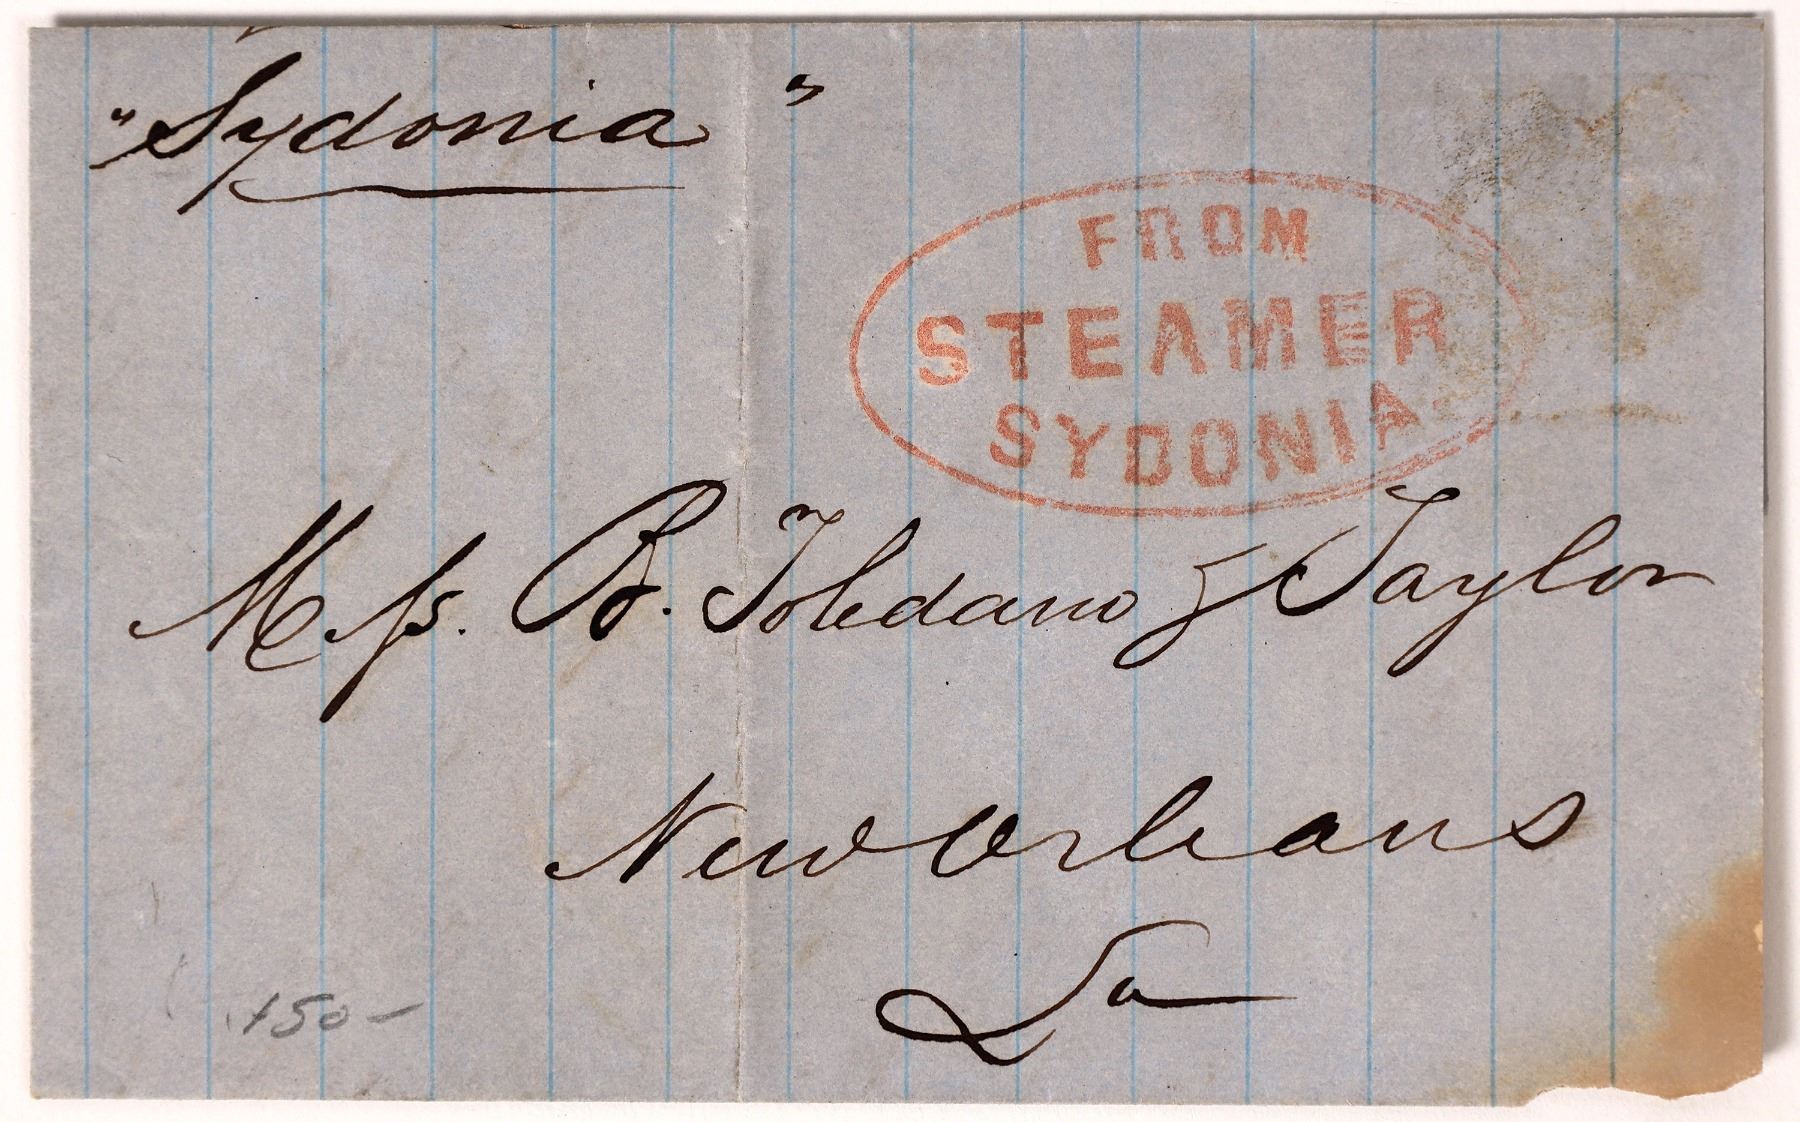 "Sydonia"
FROM
STEAMER
SYDONIA
Mſs. B. Toledano & Taylor
New Orleans
La
150-